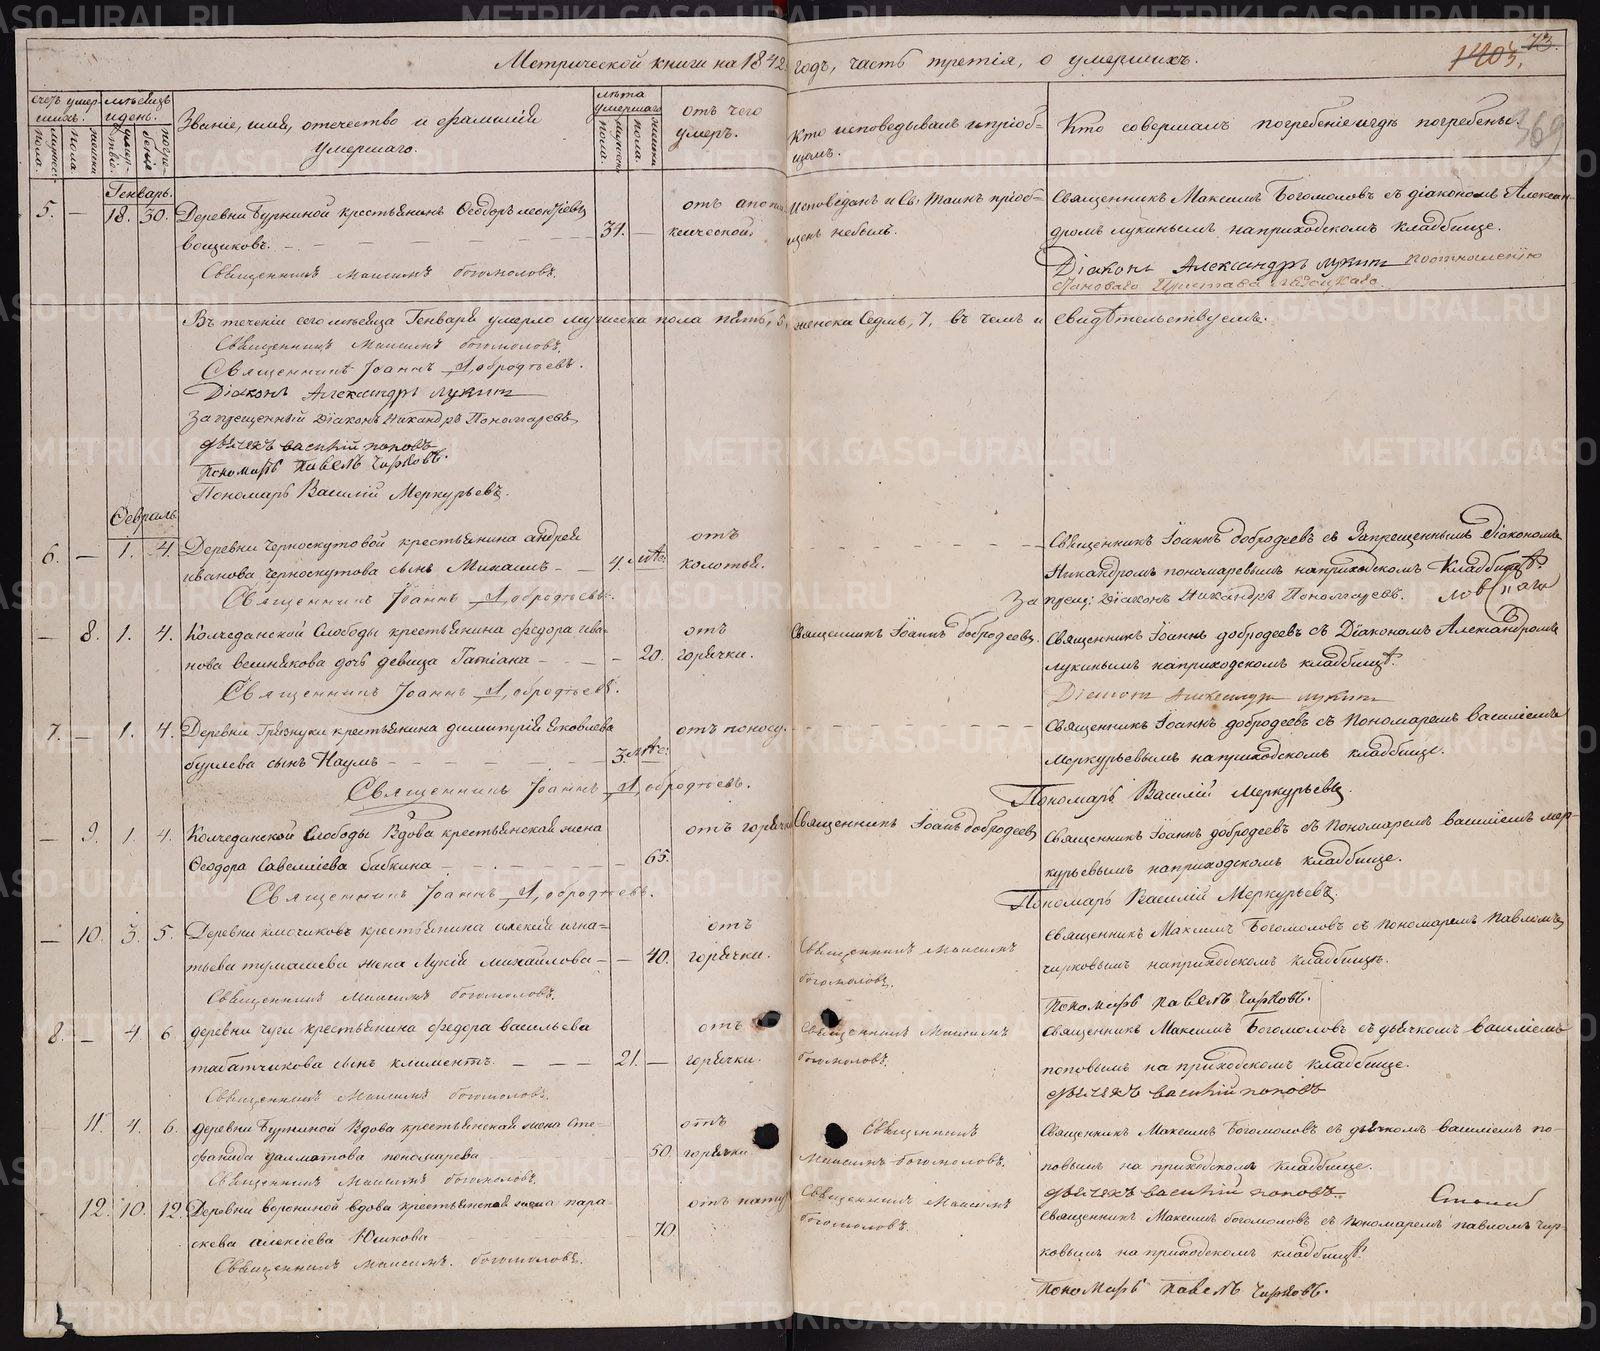 Метрической книги на 1842 годъ, часть третія, о умершихъ.
1403. 73.
369
счетъ умершихъ.
мѣсяцъ и день.
Званіе, имя, отечество и фамилія умершаго.
лѣта умершаго
отъ чего умеръ.
Кто исповедывалъ и пріобщалъ.
Кто совершалъ погребеніе и гдѣ погребены.
мужеска пола.
женска пола
смерти
погребенія
мужеска пола.
женска пола.
Генварь.
5. — 18. 30. Деревни Бурниной крестьянинъ Ѳеодоръ Леонтіевъ
31. — отъ апоплексической.
Исповеданъ и Св: Таинъ пріобщенъ небылъ.
Священникъ Максимъ Богомоловъ съ діакономъ Александромъ Лукинымъ на приходскомъ кладбище.
Священникъ Максимъ Богомоловъ.
Діаконъ Александръ Лукин по отношенію
Становаго Пристава
Въ теченіи сего мѣсяца Генваря умерло мужеска пола пять, 5, женска Седмь, 7, въ чемъ и свидѣтельствуемъ.
Священникъ Максимъ Богомоловъ.
Священникъ Іоаннъ Добродѣевъ.
Діаконъ Александръ Лукин
Запрещенный Діаконъ Никандръ Пономаревъ
Дьячекъ Василій Поповъ
Пономарь Павелъ Чирковъ.
Пономарь Василій Меркурьевъ.
Февраль
6. — 1. 4. Деревни Черноскутовой крестьянина Андрея
Иванова Черноскутова сынъ Михаилъ — — 4. отъ колотья.
Священникъ Іоаннъ Добродеевъ съ Запрещеннымъ Діакономъ
Никандромъ Пономаревымъ на приходскомъ Кладбищѣ.
Священникъ Іоаннъ Добродѣевъ.
Запрещ: Діаконъ Никандръ Пономаревъ.
— 8. 1. 4. Колчеданской Слободы крестьянина Федора Ива-
нова Вешнякова дочь девица Татіана — — 20. отъ горячки.
Священникъ Іоаннъ Добродеевъ
Священникъ Іоаннъ Добродеевъ съ Діакономъ Александромъ
Лукинымъ на приходскомъ кладбищѣ.
Священникъ Іоаннъ Добродѣевъ.
Діаконъ Александръ Лукин
7. — 1. 4. Деревни Грязнухи крестьянина Димитрія Яковлева
Бурлева сынъ Наумъ — 3. отъ поносу.
Священникъ Іоаннъ Добродеевъ съ Пономаремъ Василіемъ
Меркурьевымъ на приходскомъ кладбище.
Священникъ Іоаннъ Добродѣевъ.
Пономарь Василій Меркурьевъ.
— 9. 1. 4. Колчеданской Слободы Вдова крестьянская жена
Ѳеодора Савеліева Бабкина — 65. отъ горячки
Священникъ Іоаннъ Добродеевъ
Священникъ Іоаннъ Добродеевъ съ Пономаремъ Василіемъ Мер-
курьевымъ на приходскомъ кладбище.
Священникъ Іоаннъ Добродѣевъ.
Пономарь Василій Меркурьевъ.
— 10. 3. 5. Деревни Ключиковъ крестьянина Алексія Игна-
тьева Тумашева жена Лукія Михайлова — — 40. отъ горячки.
Священникъ Максимъ Богомоловъ.
Священникъ Максимъ Богомоловъ съ Пономаремъ Павломъ
Чирковымъ на приходскомъ кладбищѣ.
Священникъ Максимъ Богомоловъ.
Пономарь Павелъ Чирковъ.
8. — 4 6 деревни Чуги крестьянина Федора Васильева
Табатчикова сынъ Климентъ — — — 21. — отъ горячки.
Священникъ Максимъ Богомоловъ.
Священникъ Максимъ Богомоловъ съ дьячкомъ Василіемъ
Поповымъ на приходскомъ кладбище.
Священникъ Максимъ Богомоловъ.
Дьячекъ Василій Поповъ
11. 4. 6. деревни Бурниной Вдова крестьянская жена Сте-
фанида Далматова Пономарева 50. отъ горячки
Священникъ Максимъ Богомоловъ.
Священникъ Максимъ Богомоловъ съ дьячкомъ Василіемъ По-
повымъ на приходскомъ кладбище.
Священникъ Максимъ Богомоловъ.
Дьячекъ Василій Поповъ.
12. 10. 12. Деревни Ворониной вдова крестьянская жена Пара-
скева Алексіева Юшкова 70. отъ натуг
Священникъ Максимъ Богомоловъ.
Священникъ Максимъ Богомоловъ съ Пономаремъ Павломъ Чир-
ковымъ на приходскомъ кладбищѣ.
Священникъ Максимъ Богомоловъ.
Пономарь Павелъ Чирковъ.
METRIKI.GASO-URAL.RU